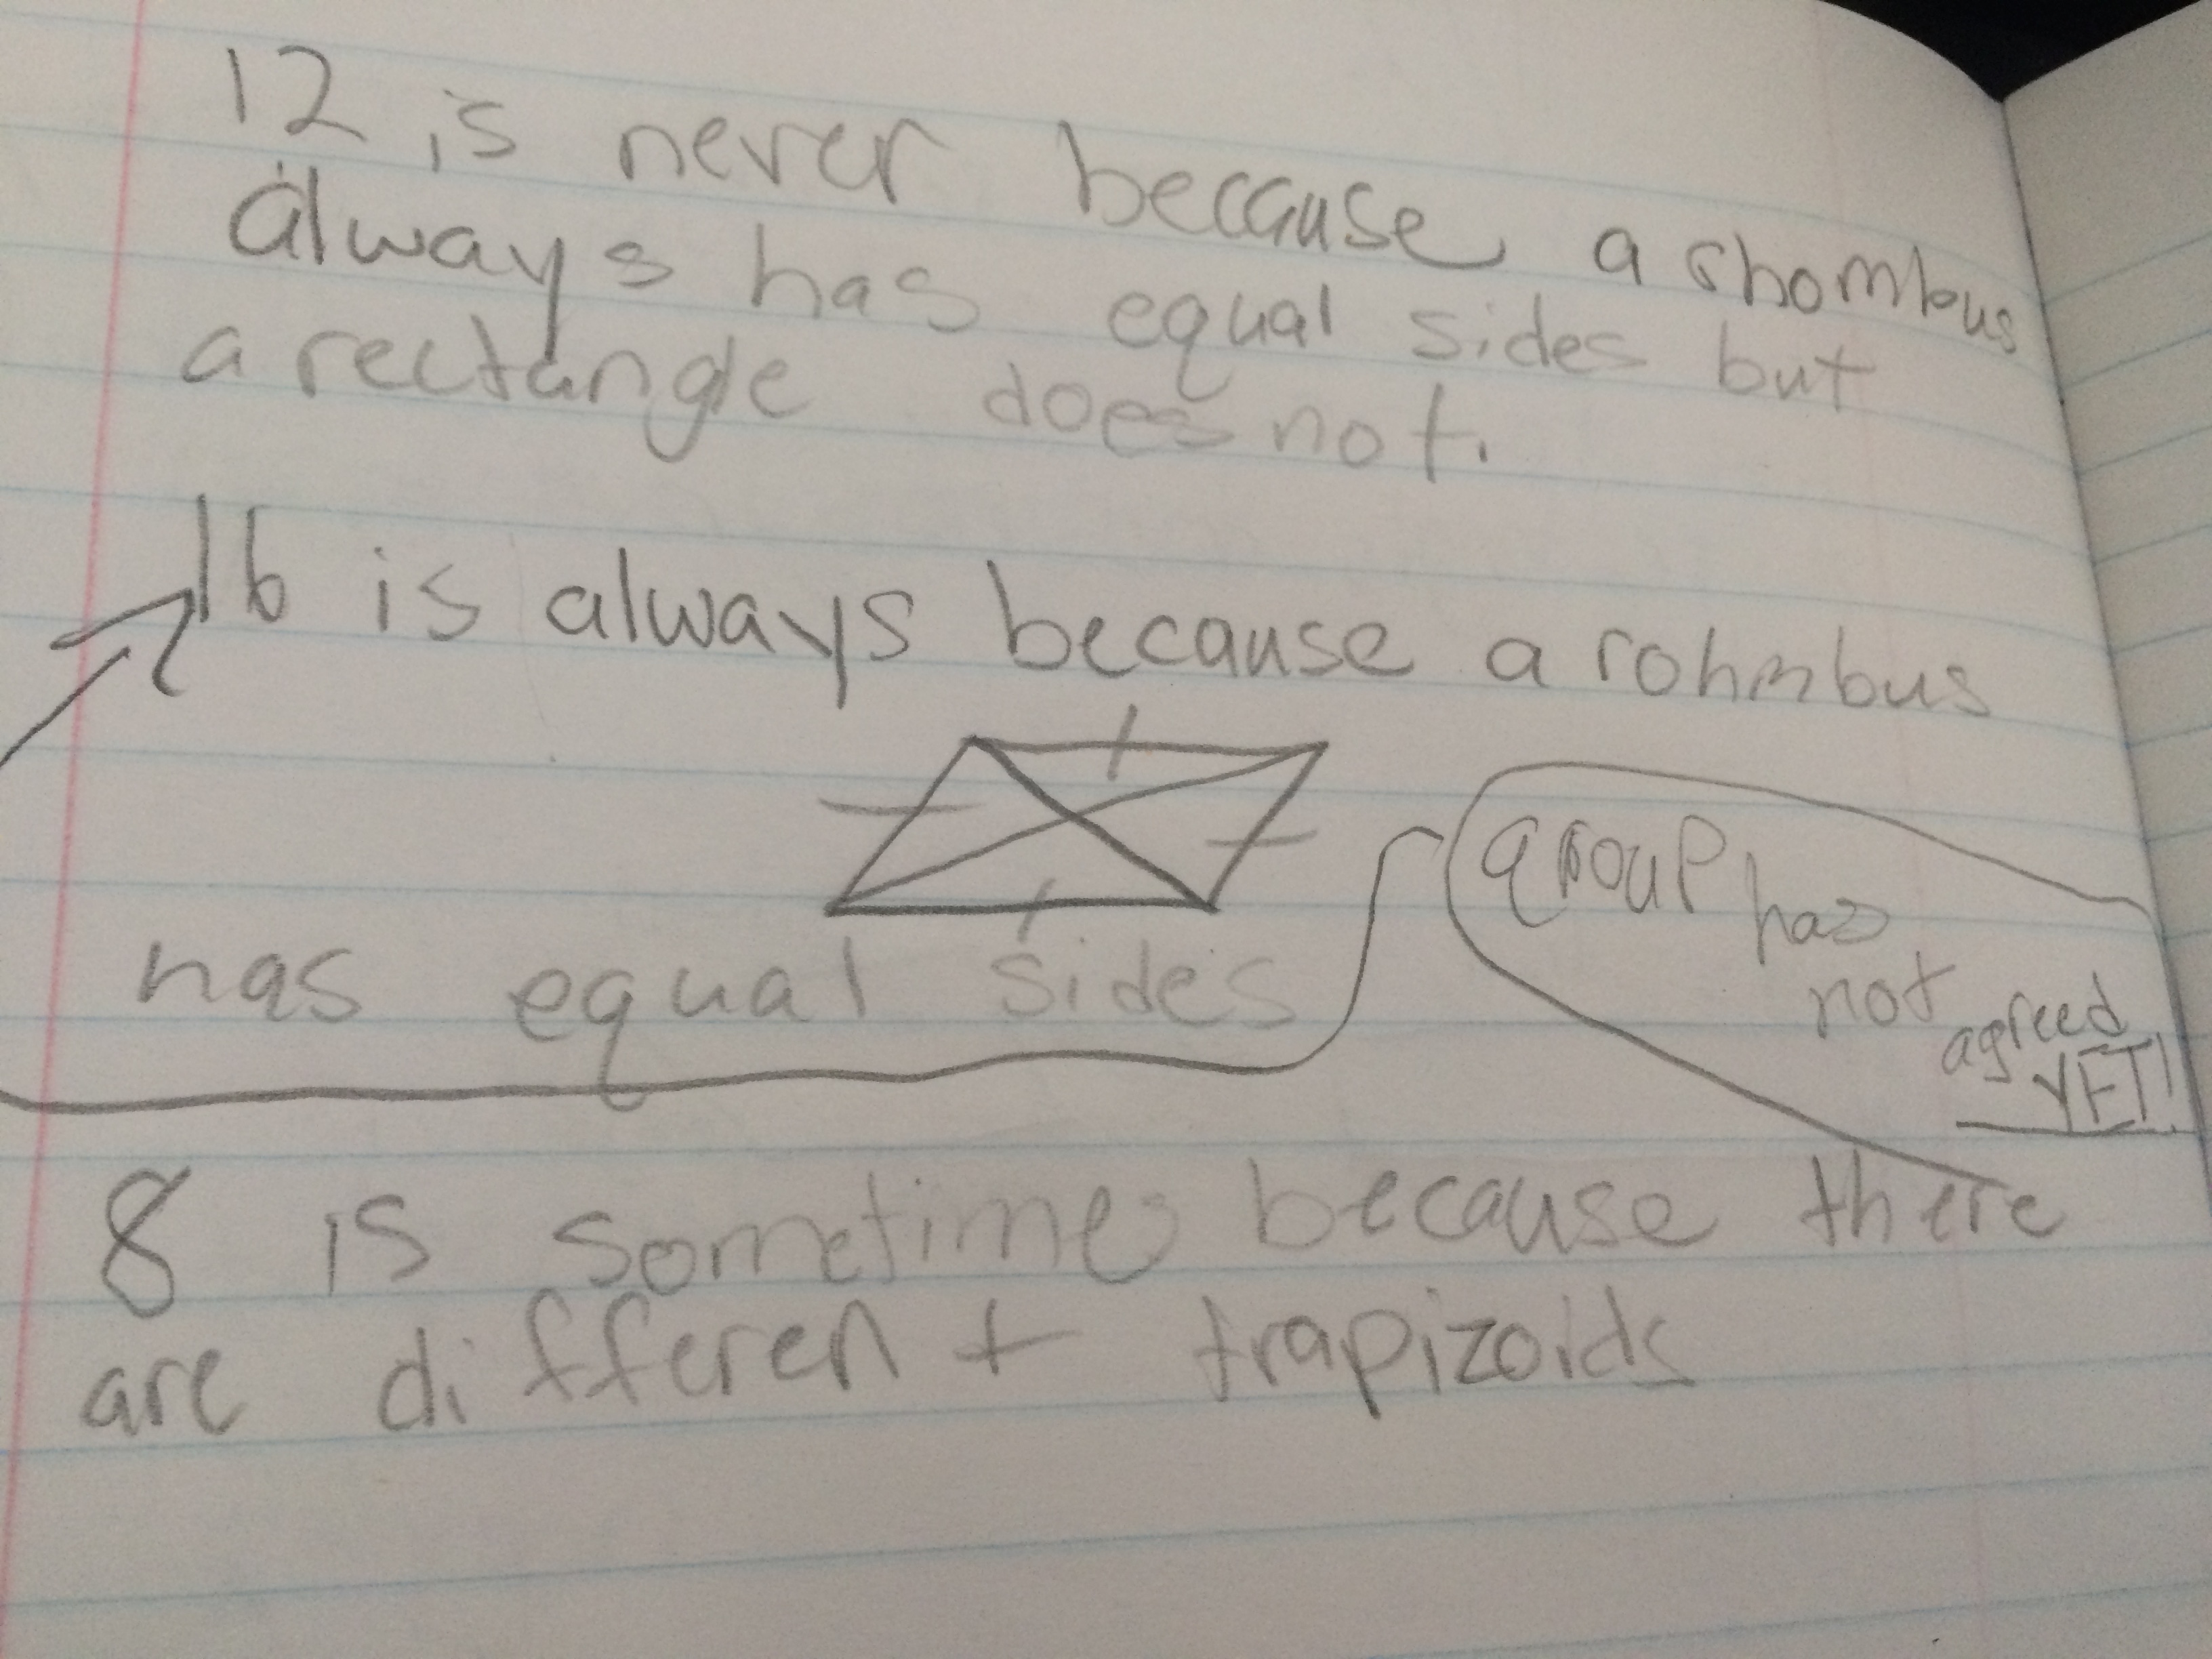 12 is never because a rhombus
always has equal sides but
a rectangle does not.
16 is always because a rohmbus
has equal sides
group has
not
agreed
YET!
8 is sometimes because there
are different trapizoids